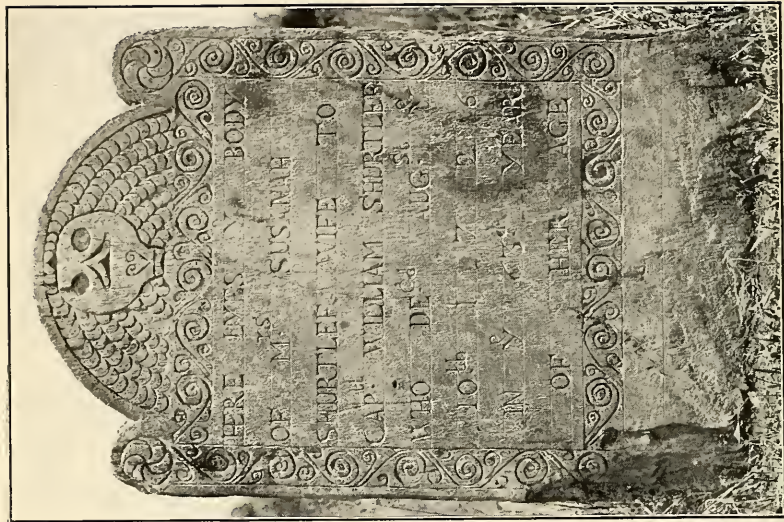 HERE LYES Y BODY
OF Mrs SUSANAH
SHURTLEF WIFE TO
CAPtt WILLIAM SHURTLEF
WHO DEcd AUGst ye
10th 1 7 2 6
IN ye YEAR
OF HER AGE